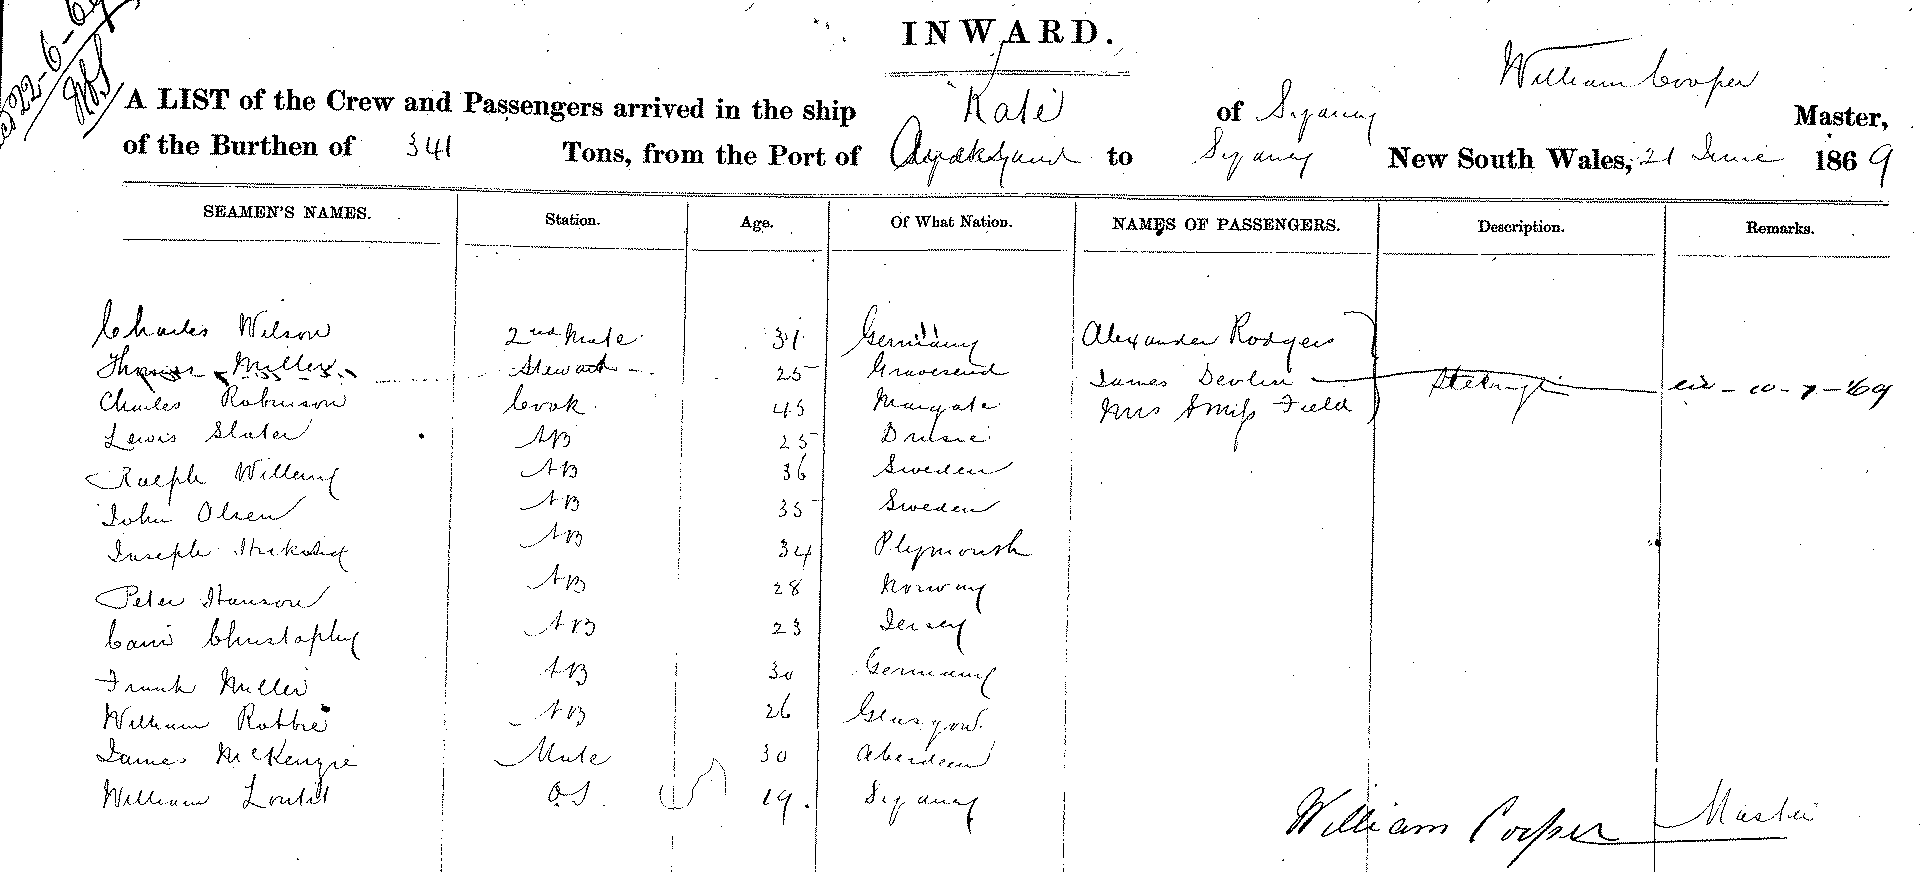 22-6-69
INWARD.
William Cooper
A LIST of the Crew and Passengers arrived in the ship Kate of Sydney Master,
of the Burthen of 341 Tons, from the Port of Auckland to Sydney New South Wales, 21 June 1869
SEAMEN'S NAMES. Station. Age. Of What Nation. NAMES OF PASSENGERS. Description. Remarks.
Charles Wilson 2nd Mate 31 Germany Alexander Rodgers
Thomas Miller Steward 25 Gravesend James Devlin - 10-7-69
Charles Robinson Cook 45 Margate Mrs & Miss Field
Lewis Slater AB 25
Ralph AB 36 Sweden
John Olsen AB 35 Sweden
Joseph AB 34 Plymouth
Peter Hanson AB 28 Norway
Christophy AB 23 Jersey
Frank Miller AB 30 Germany
William Robbie AB 26 Glasgow
James McKenzie Mate 30 Aberdeen
William Loutit O.S. 19. Sydney
William Cooper Master